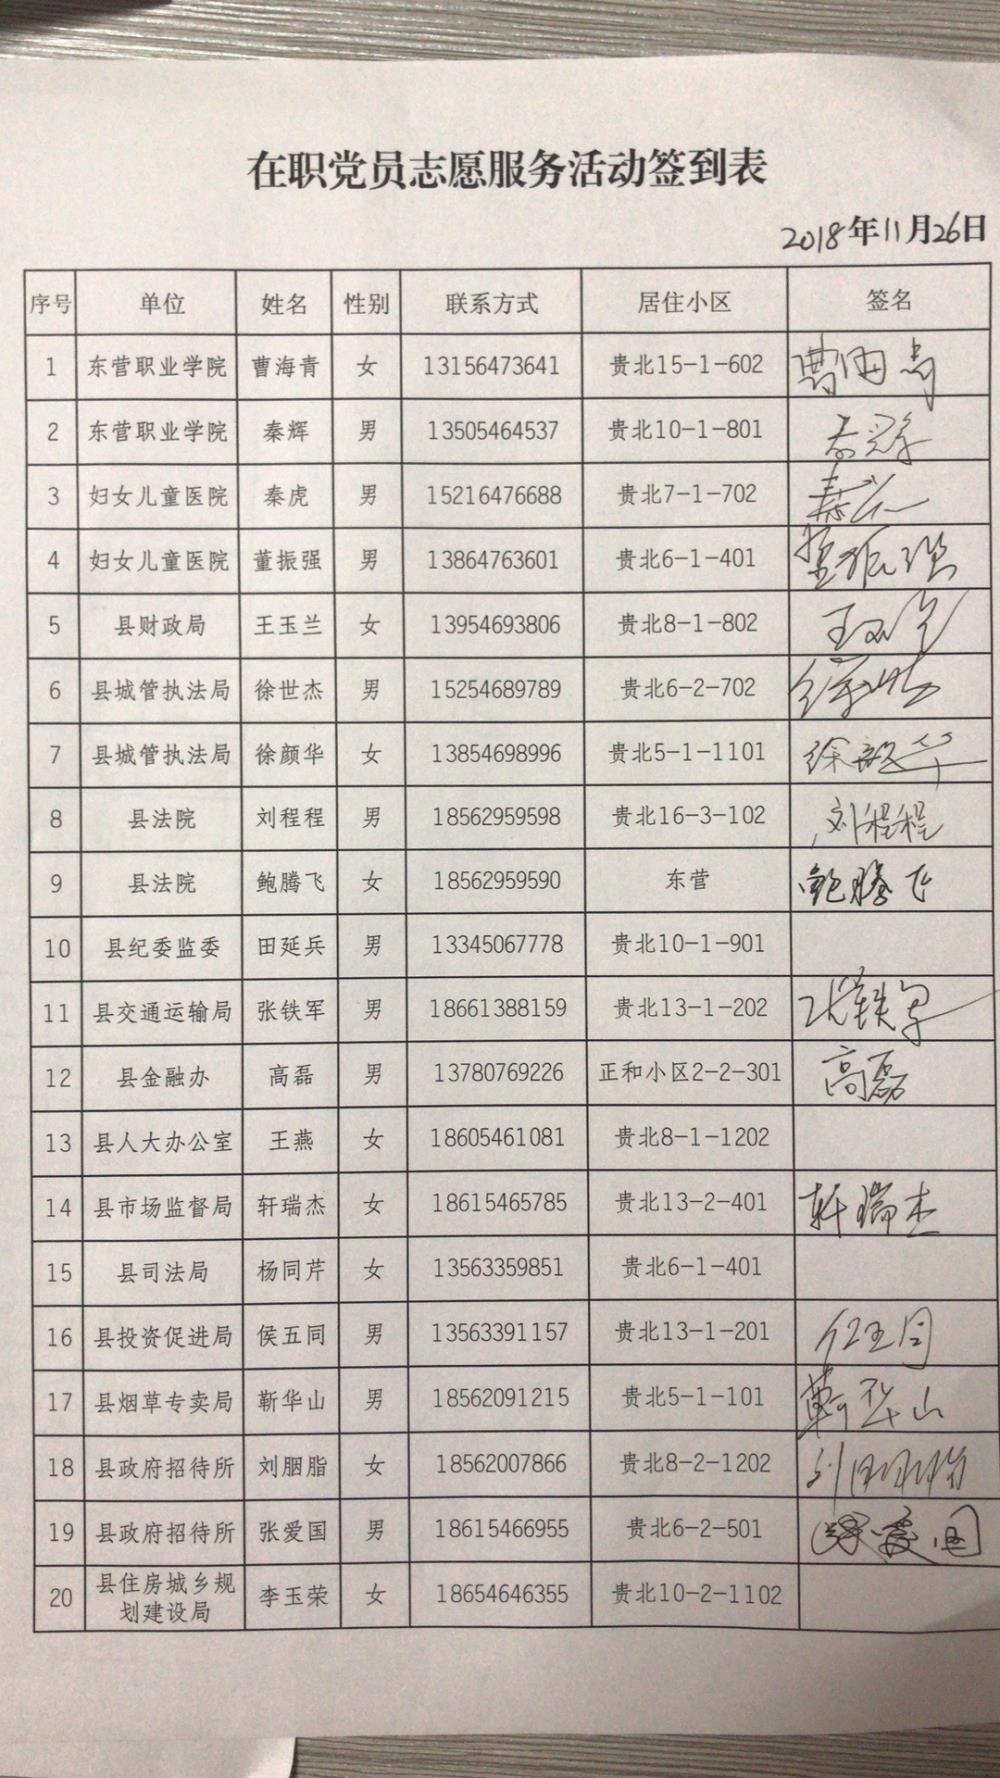 在职党员志愿服务活动签到表
2018年11月26日
序号 单位 姓名 性别 联系方式 居住小区 签名
1 东营职业学院 曹海青 女 13156473641 贵北15-1-602 曹海青
2 东营职业学院 秦辉 男 13505464537 贵北10-1-801
3 妇女儿童医院 秦虎 男 15216476688 贵北7-1-702
4 妇女儿童医院 董振强 男 13864763601 贵北6-1-401 董振强
5 县财政局 王玉兰 女 13954693806 贵北8-1-802 王玉兰
6 县城管执法局 徐世杰 男 15254689789 贵北6-2-702
7 县城管执法局 徐颜华 女 13854698996 贵北5-1-1101 徐颜华
8 县法院 刘程程 男 18562959598 贵北16-3-102 刘程程
9 县法院 鲍腾飞 女 18562959590 东营 鲍腾飞
10 县纪委监委 田延兵 男 13345067778 贵北10-1-901
11 县交通运输局 张铁军 男 18661388159 贵北13-1-202 张铁军
12 县金融办 高磊 男 13780769226 正和小区2-2-301 高磊
13 县人大办公室 王燕 女 18605461081 贵北8-1-1202
14 县市场监督局 轩瑞杰 女 18615465785 贵北13-2-401 轩瑞杰
15 县司法局 杨同芹 女 13563359851 贵北6-1-401
16 县投资促进局 侯五同 男 13563391157 贵北13-1-201 侯五同
17 县烟草专卖局 靳华山 男 18562091215 贵北5-1-101 靳华山
18 县政府招待所 刘胭脂 女 18562007866 贵北8-2-1202 刘胭脂
19 县政府招待所 张爱国 男 18615466955 贵北6-2-501 张爱国
20 县住房城乡规 李玉荣 女 18654646355 贵北10-2-1102
划建设局